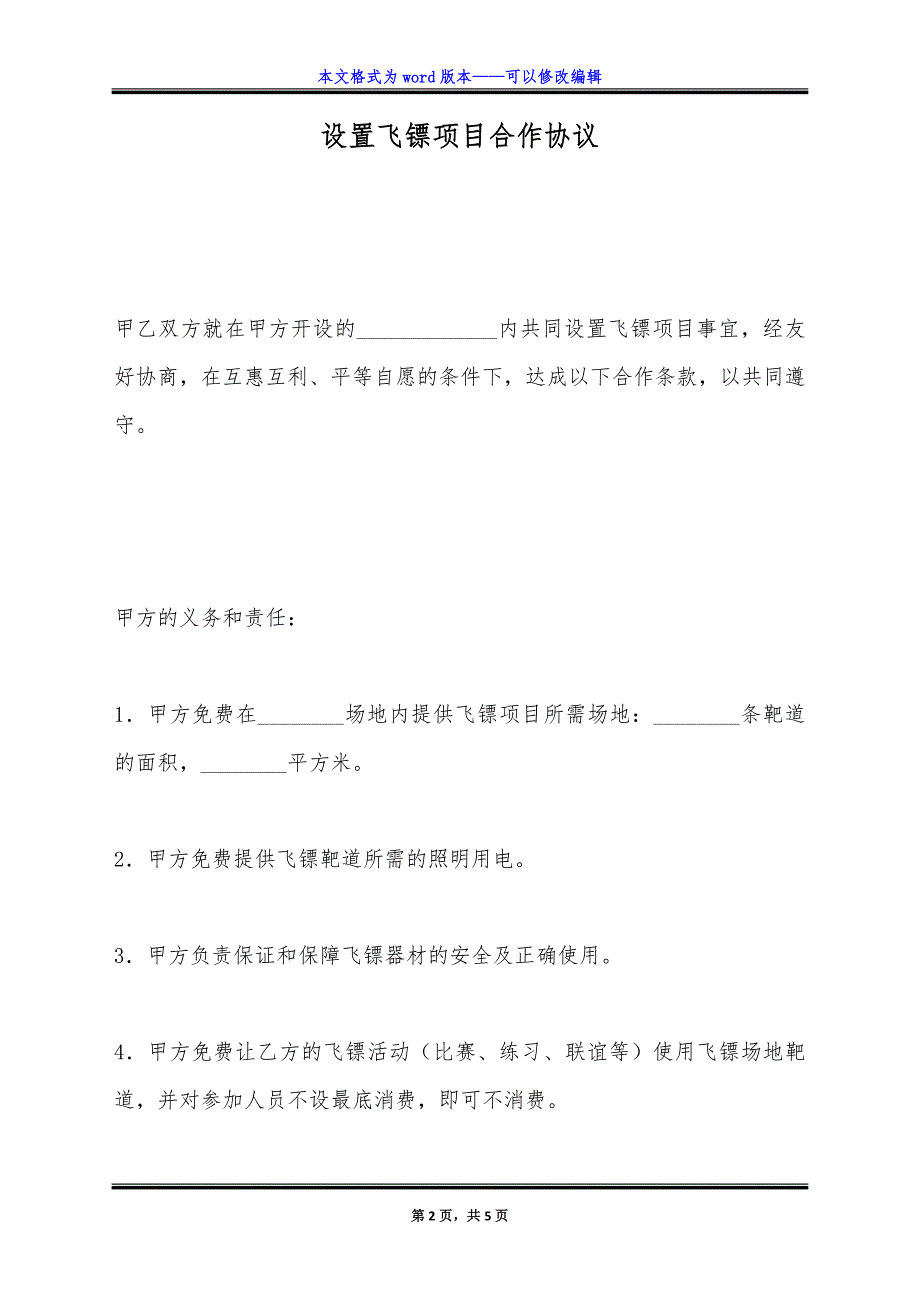 本文格式为 word 版本——可以修改编辑
设置飞镖项目合作协议
甲乙双方就在甲方开设的_____________内共同设置飞镖项目事宜，经友
好协商，在互惠互利、平等自愿的条件下，达成以下合作条款，以共同遵
守。
甲方的义务和责任：
1．甲方免费在________场地内提供飞镖项目所需场地：________条靶道
的面积，________平方米。
2．甲方免费提供飞镖靶道所需的照明用电。
3．甲方负责保证和保障飞镖器材的安全及正确使用。
4．甲方免费让乙方的飞镖活动（比赛、练习、联谊等）使用飞镖场地靶
道，并对参加人员不设最底消费，即可不消费。
第 2 页，共 5 页